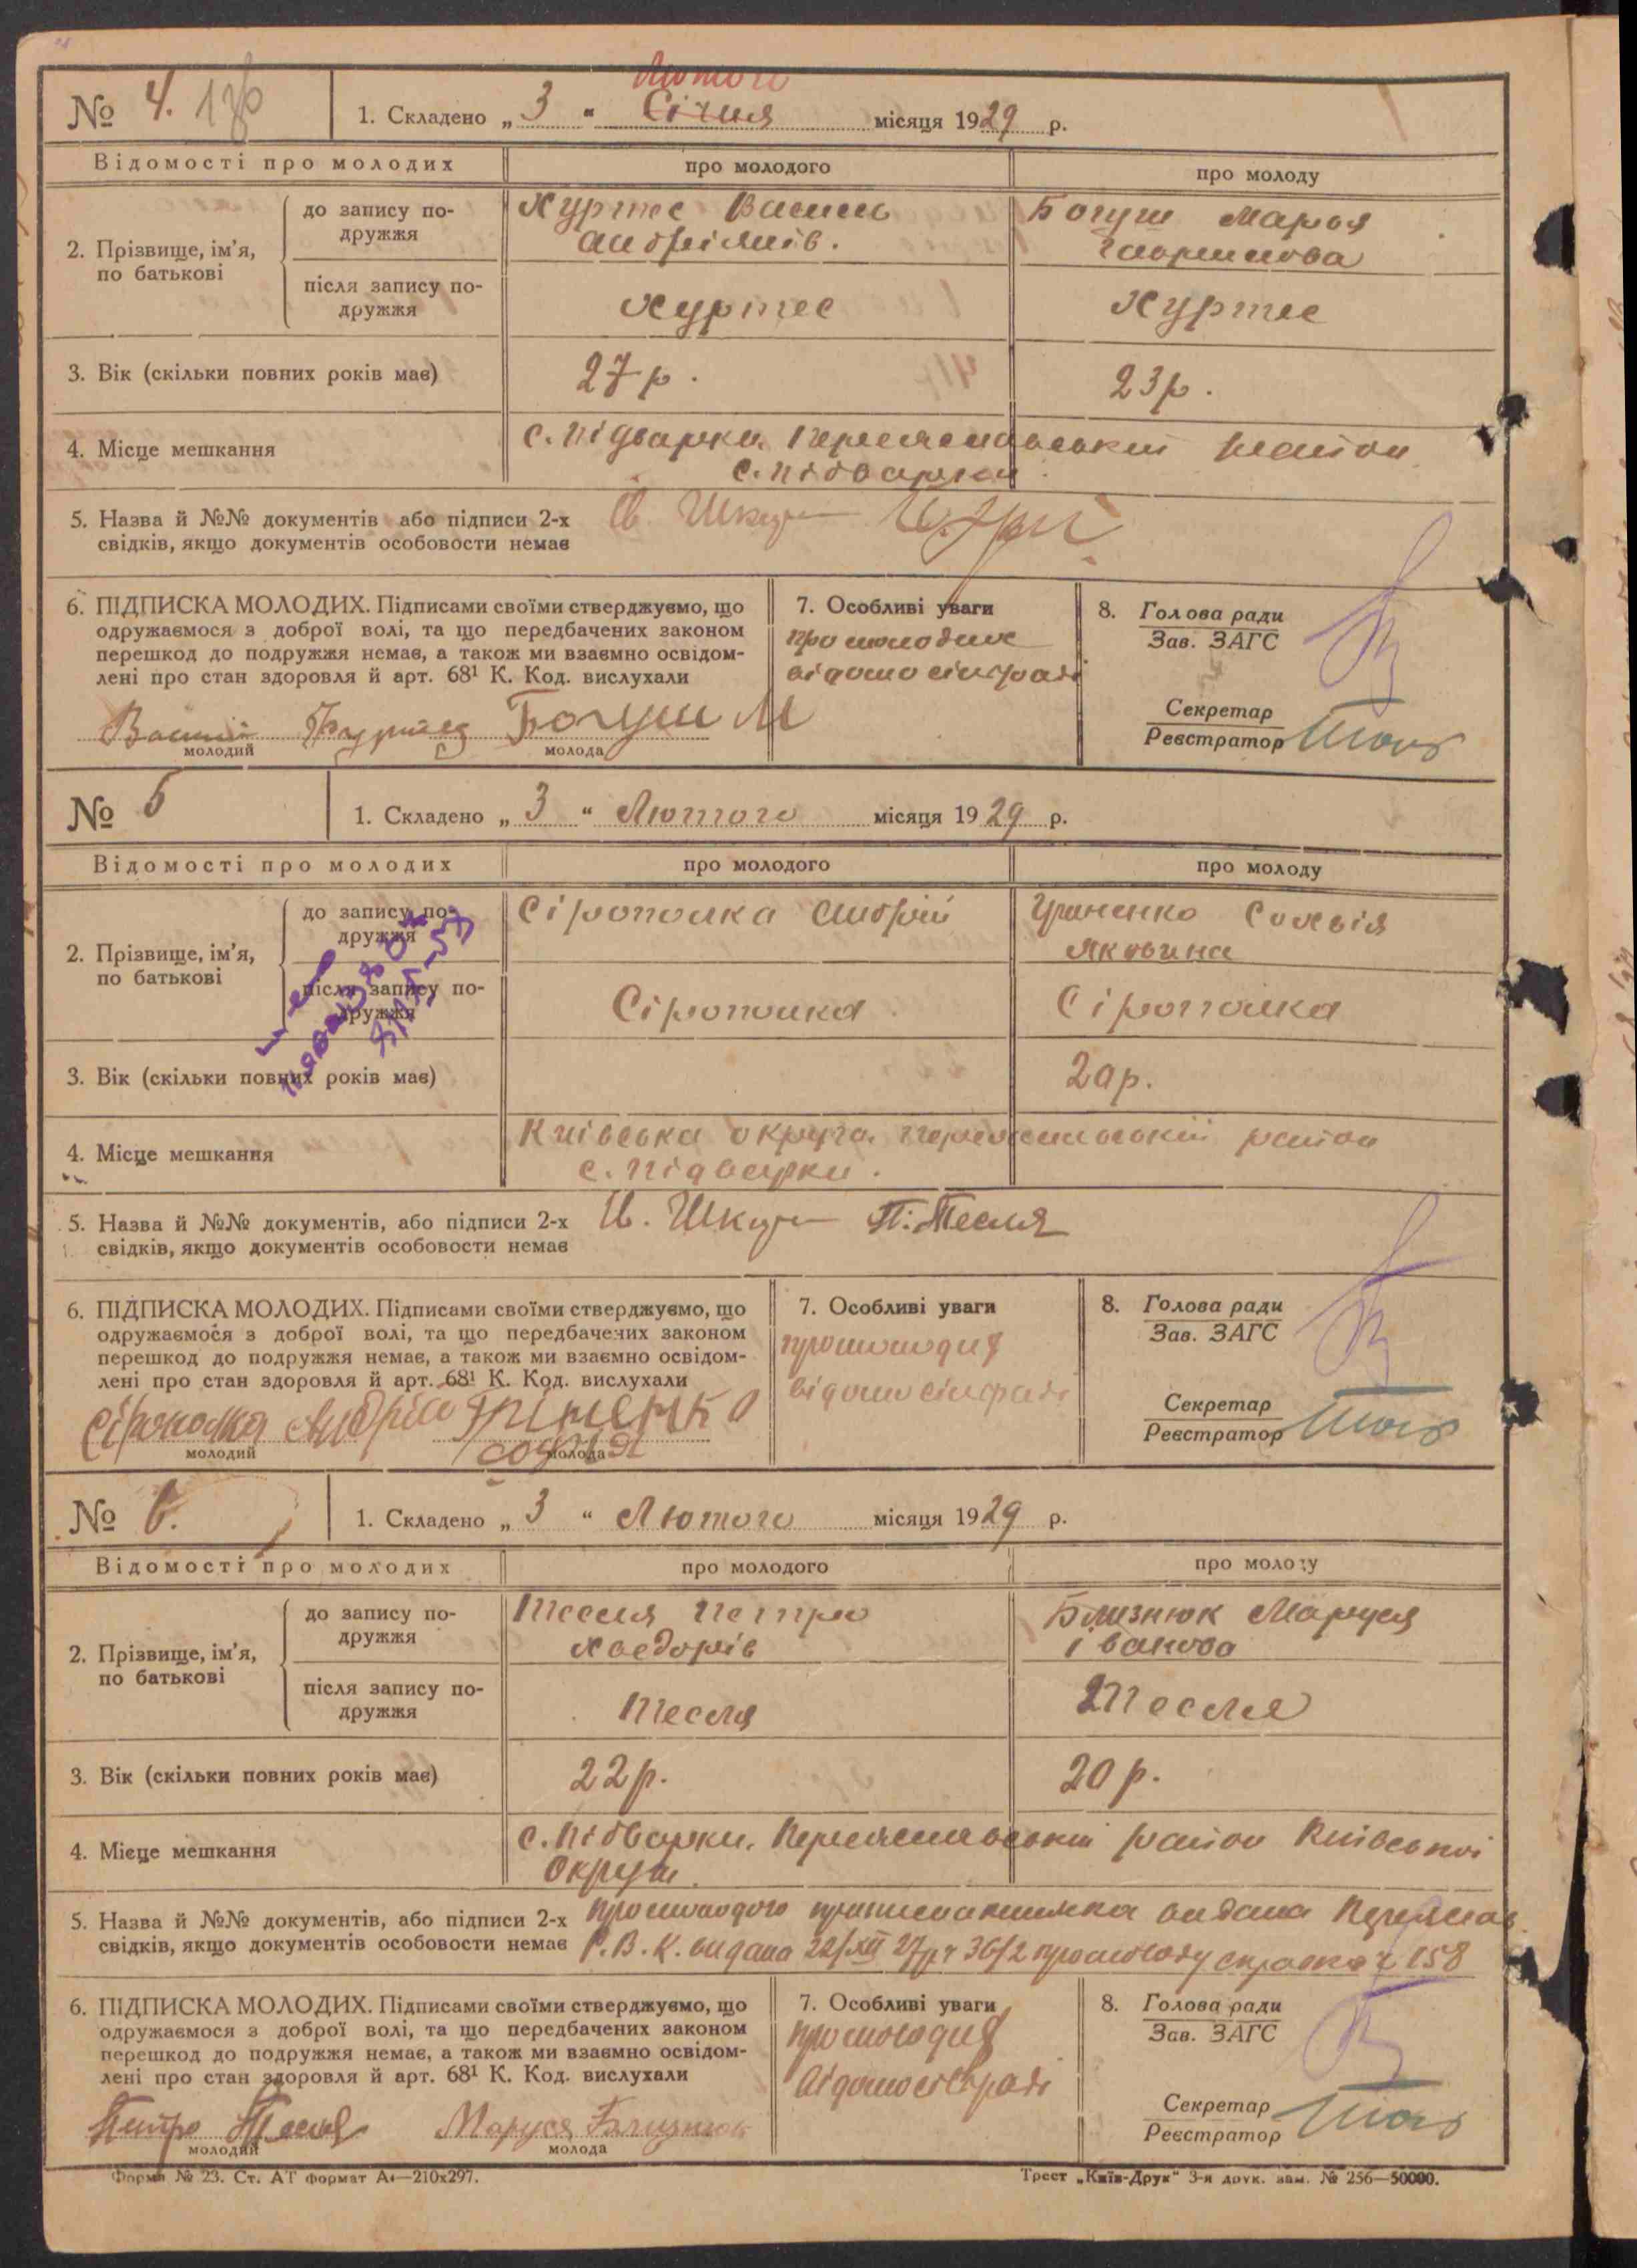 Лютого
№ 4. 1. Складено „ 3 “ Січня місяця 1929 р.
Відомості про молодих про молодого про молоду
2. Прізвище, ім’я, по батькові
до запису подружжя Василь Богуш Марья
Андріянів.
після запису подружжя
3. Вік (скільки повних років має) 27 р. 23 р.
4. Місце мешкання с. Підварки, Переяславський район
с. Підварки
5. Назва й №№ документів або підписи 2-х
свідків, якщо документів особовости немає
6. ПІДПИСКА МОЛОДИХ. Підписами своїми стверджуємо, що
одружаємося з доброї волі, та що передбачених законом
перешкод до подружжя немає, а також ми взаємно освідом-
лені про стан здоровля й арт. 68¹ К. Код. вислухали
Богуш М
молодий молода
7. Особливі уваги
про молодих
відомо сільраді
8. Голова ради
Зав. ЗАГС
Секретар
Реєстратор
№ 5 1. Складено „ 3 “ Лютого місяця 1929 р.
Відомості про молодих про молодого про молоду
2. Прізвище, ім’я, по батькові
до запису подружжя Сірополка Андрій Гриненко
Яковина
після запису подружжя Сірополка Сірополка
3. Вік (скільки повних років має)
4. Місце мешкання Київська округа, Переяславський район
с. Підварки.
5. Назва й №№ документів, або підписи 2-х П. Тесля
свідків, якщо документів особовости немає
6. ПІДПИСКА МОЛОДИХ. Підписами своїми стверджуємо, що
одружаємося з доброї волі, та що передбачених законом
перешкод до подружжя немає, а також ми взаємно освідом-
лені про стан здоровля й арт. 68¹ К. Код. вислухали
Сірополка Андрій Гріненко
Софія
молодий молода
7. Особливі уваги
про молодих
відомо сільраді
8. Голова ради
Зав. ЗАГС
Секретар
Реєстратор
№ 6. 1. Складено „ 3 “ Лютого місяця 1929 р.
Відомості про молодих про молодого про молоду
2. Прізвище, ім’я, по батькові
до запису подружжя Тесля Петро Близнюк Маруся
Хведорів Іванова
після запису подружжя Тесля Тесля
3. Вік (скільки повних років має) 22 р. 20 р.
4. Місце мешкання с. Підварки, Переяславський район Київської
округи.
5. Назва й №№ документів, або підписи 2-х про молодого видана Переяслав.
свідків, якщо документів особовости немає Р.В.К. видана 22/XII 27 р. ч 36/2 про молоду справка ч 158
6. ПІДПИСКА МОЛОДИХ. Підписами своїми стверджуємо, що
одружаємося з доброї волі, та що передбачених законом
перешкод до подружжя немає, а також ми взаємно освідом-
лені про стан здоровля й арт. 68¹ К. Код. вислухали
Петро Тесля Маруся Близнюк
молодий молода
7. Особливі уваги
про молодих
відомо сільраді
8. Голова ради
Зав. ЗАГС
Секретар
Реєстратор
Форма № 23. Ст. АТ формат А₄—210х297. Трест „Київ-Друк“ 3-я друк. зам. № 256—50000.